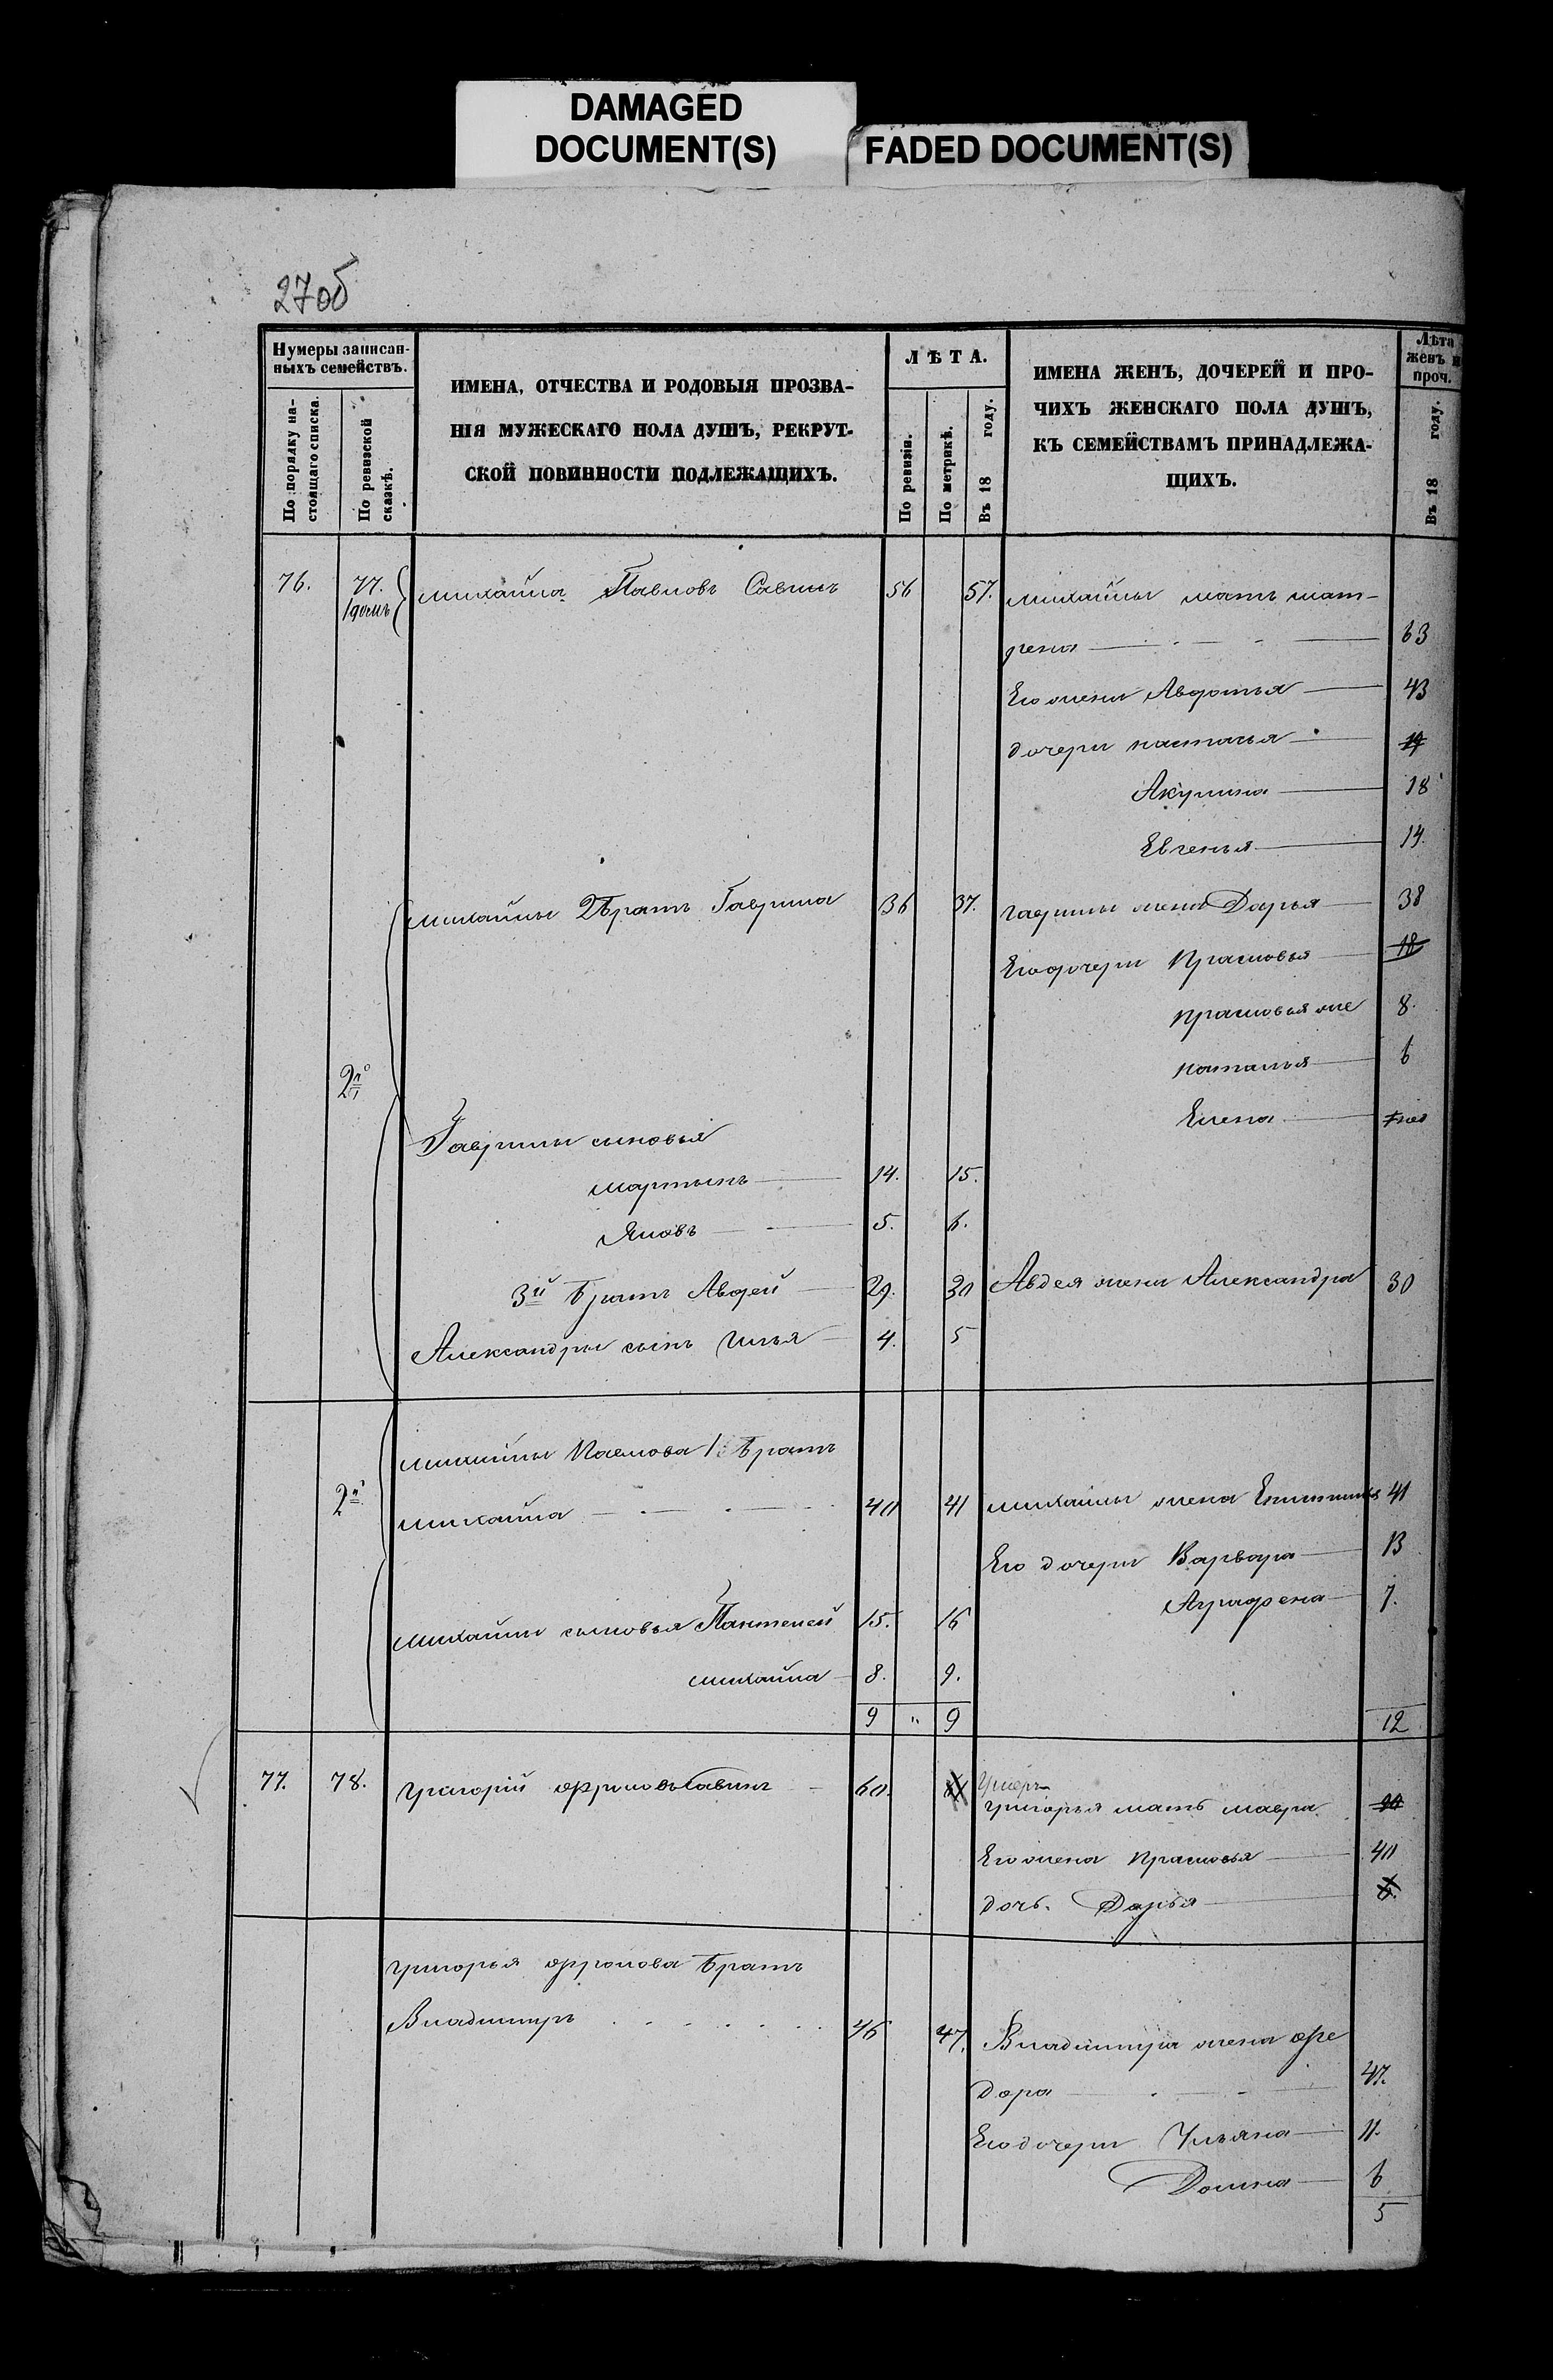 DAMAGED
DOCUMENT(S)
FADED DOCUMENT(S)
27об
Нумеры записан-
ныхъ семействъ.
По порядку на-
стоящаго списка.
По ревизской
сказкѣ.
ИМЕНА, ОТЧЕСТВА И РОДОВЫЯ ПРОЗВА-
НІЯ МУЖЕСКАГО ПОЛА ДУШЪ, РЕКРУТ-
СКОЙ ПОВИННОСТИ ПОДЛЕЖАЩИХЪ.
ЛѢТА.
По ревизіи.
По метрикѣ.
Въ 18 году.
ИМЕНА ЖЕНЪ, ДОЧЕРЕЙ И ПРО-
ЧИХЪ ЖЕНСКАГО ПОЛА ДУШЪ,
КЪ СЕМЕЙСТВАМЪ ПРИНАДЛЕЖА-
ЩИХЪ.
Лѣта
женъ и
проч.
Въ 18 году.
76. 77. михайла Павловъ Савинъ 56 57. михайлы мать мат-
1 домъ
рена 63
Его жена Авдотья 43
дочери настасья 19
Акулина 18
Евгенья 14.
михайлы 2 братъ Гаврила 36 37. гаврилы жена Дарья 38
Его дочери Прасковья 18
прасковья же 8.
2й наталья 6
Елена
Гаврилы сыновья
мартынъ 14. 15.
Яковъ 5. 6.
3й братъ Авдей 29. 30 Авдея жена Александра 30
Александры сынъ Илья 4. 5
михайлы Павлова братъ
2й михайла 40 41 михайлы жена 41
Его дочери Варвара 13
Аграфена 7.
михайлы сыновья Пантелей 15. 16
михайла 8. 9.
9 " 9 12
77. 78. григорій Савинъ 60. 61 Умеръ
григорья мать мавра 90
Его жена прасковья 40
дочь Дарья 6.
григорья братъ
Владимиръ 46 47. Владимира жена Фе
дора 47.
Его дочери Ульяна 11.
Домна 6
5